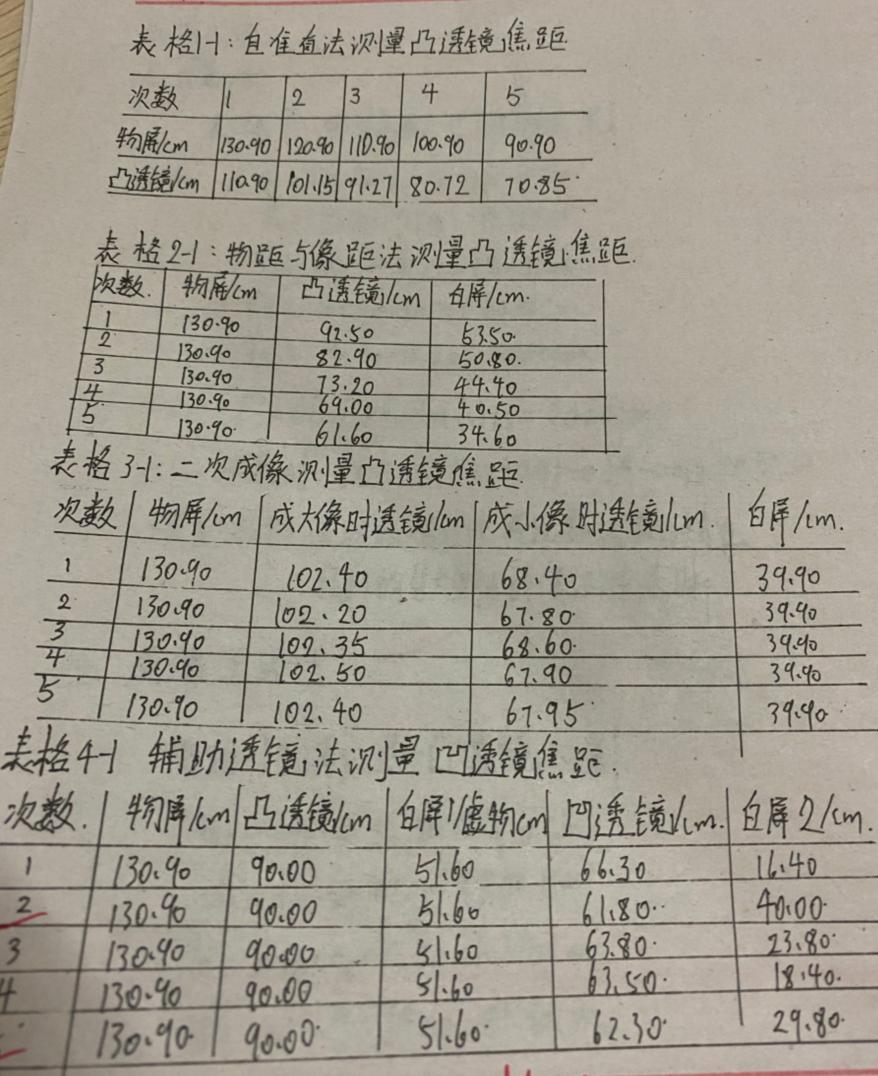 表格1-1：自准直法测量凸透镜焦距
次数 1 2 3 4 5
物屏/cm 130.90 120.90 110.90 100.90 90.90
凸透镜/cm 110.90 101.15 91.27 80.72 70.85
表格2-1：物距与像距法测量凸透镜焦距.
次数. 物屏/cm 凸透镜/cm 白屏/cm.
1 130.90 92.50 53.50
2 130.90 82.90 50.80.
3 130.90 73.20 44.40
4 130.90 69.00 40.50
5 130.90 61.60 34.60
表格3-1：二次成像测量凸透镜焦距.
次数 物屏/cm 成大像时透镜/cm 成小像时透镜/cm. 白屏/cm.
1 130.90 102.40 68.40 39.90
2 130.90 102.20 67.80 39.90
3 130.90 102.35 68.60 39.90
4 130.90 102.50 67.90 39.90
5 130.90 102.40 67.95 39.90
表格4-1 辅助透镜法测量凹透镜焦距.
次数. 物屏/cm 凸透镜/cm 白屏1/虚物cm 凹透镜/cm. 白屏2/cm.
1 130.90 90.00 51.60 66.30 16.40
2 130.90 90.00 51.60 61.80 40.00
3 130.90 90.00 51.60 63.80 23.80
4 130.90 90.00 51.60 63.50 18.40
130.90 90.00 51.60 62.30 29.80